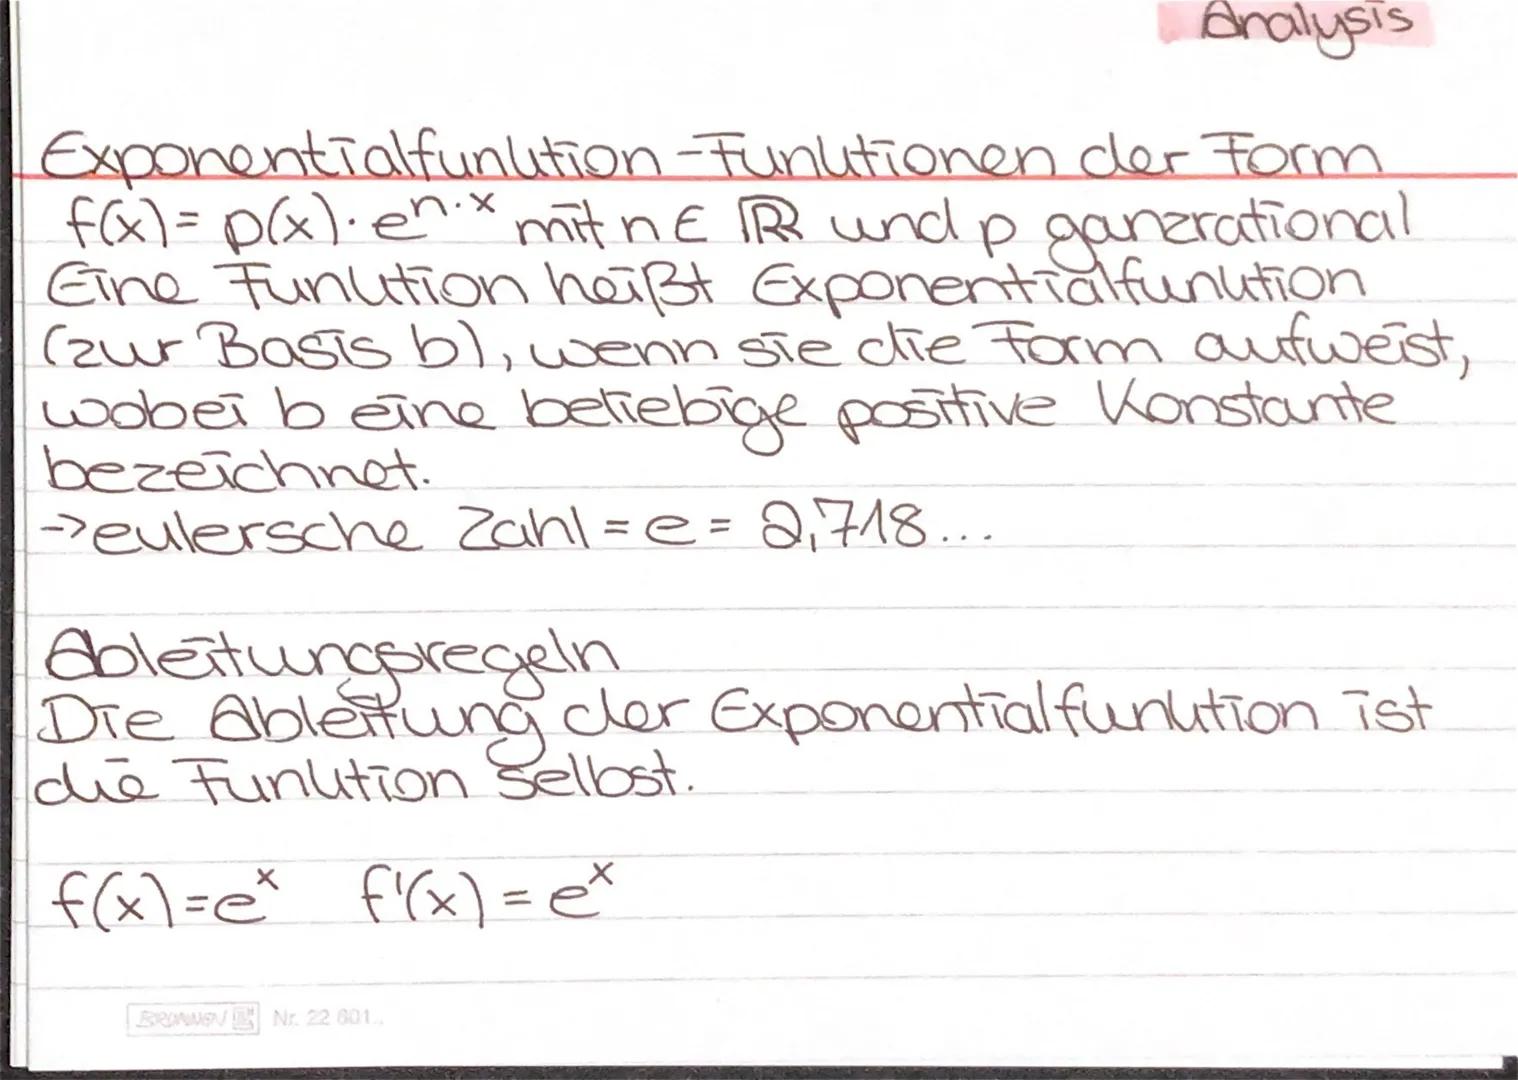 Analysis
Exponentialfunktion - Funktionen der Form
f(x) = p(x) · e^n·x mit n ∈ ℝ und p ganzrational
Eine Funktion heißt Exponentialfunktion
(zur Basis b), wenn sie die Form aufweist,
wobei b eine beliebige positive Konstante
bezeichnet.
→ eulersche Zahl = e = 2,718...
Ableitungsregeln
Die Ableitung der Exponentialfunktion ist
die Funktion selbst.
f(x) = e^x f'(x) = e^x
BRUNNEN Nr. 22 601..